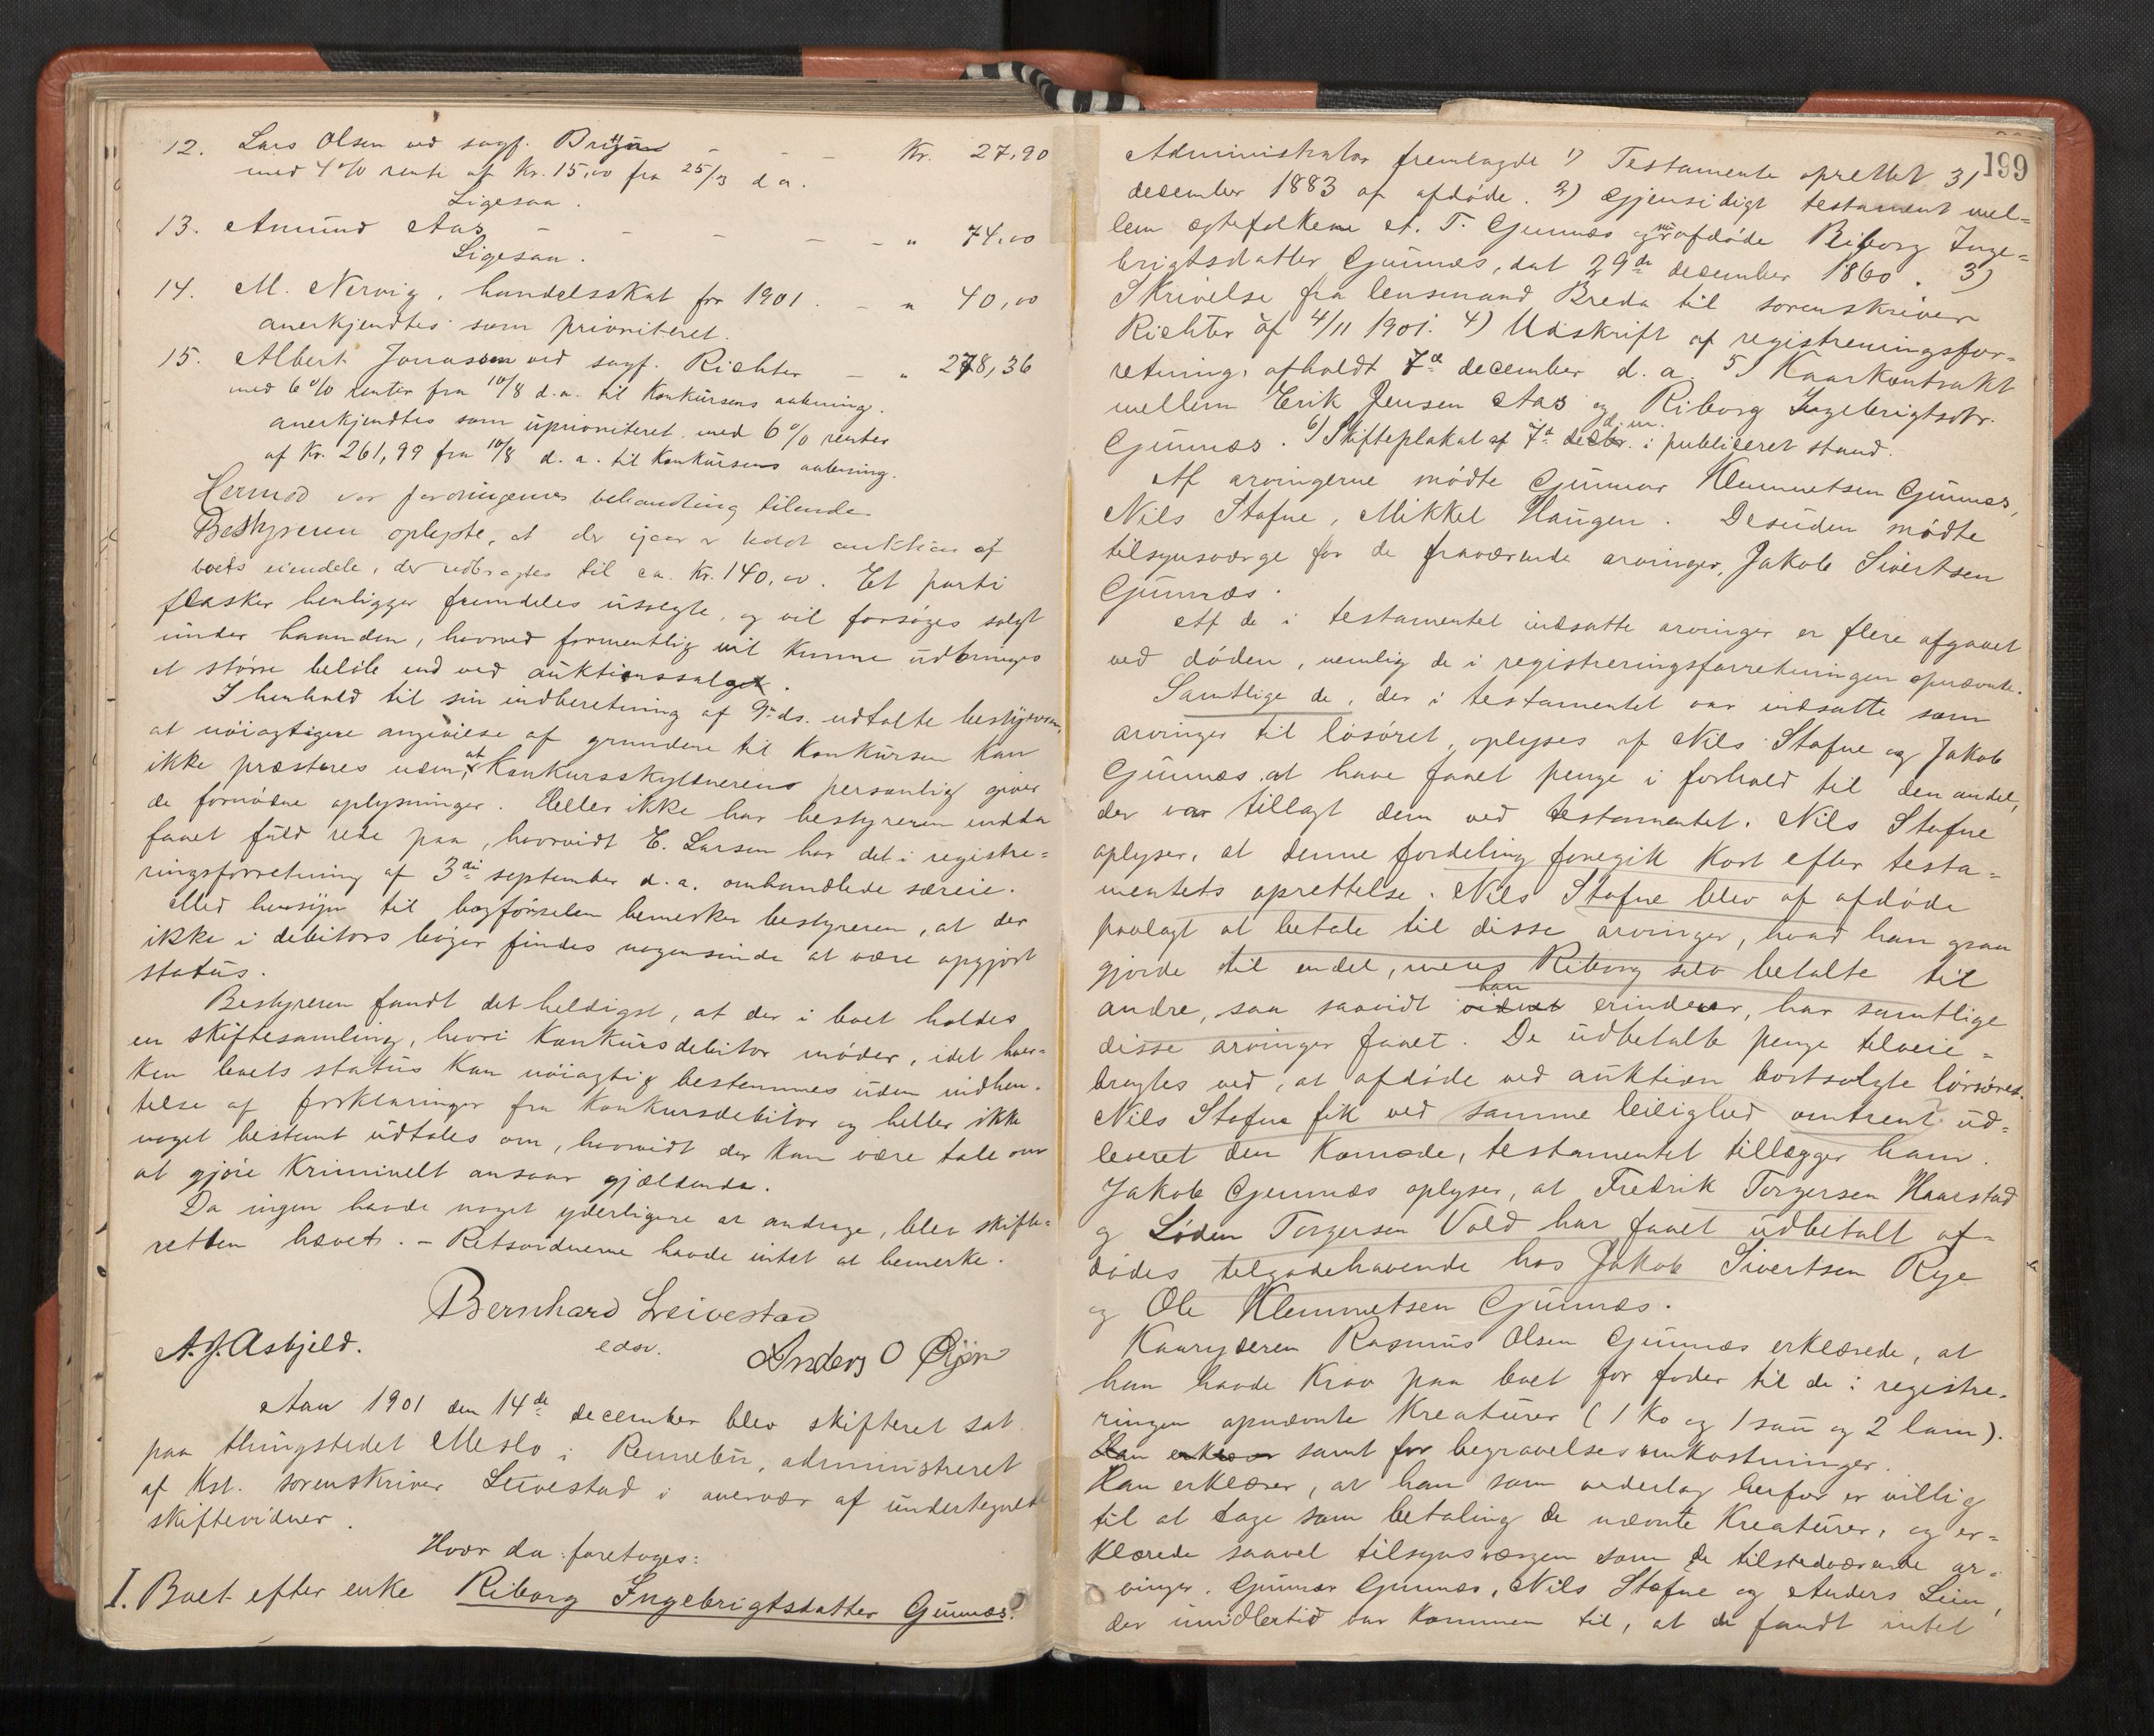 12. Lars Olsen ved sagf. - - - Kr. 27,90
med 4 % rente af Kr. 15,00 fra 25/3 d. a.
Ligesaa.
13. Amund Aas - - - - - " 74,00
Ligesaa.
14. M. Nervig, handelsskat for 1901. - " 40,00
anerkjendtes som prioriteret.
15. Albert Jonassen ved sagf. Richter - " 278,36
med 6 % renter fra 10/8 d. a. til Konkursens aabning.
anerkjendtes som uprioriteret med 6 % renter
af Kr. 261,99 fra 10/8 d. a. til Konkursens aabning.
Hermed var fordringernes behandling tilende.
Bestyreren oplyste, at der igaar er holdt auktion af
boets eiendele, der udbragtes til ca. Kr. 140,00. Et parti
flasker henligger fremdeles usolgte, og vil forsøges solgt
under haanden, hvorved formentlig vil kunne udbringes
et større beløb end ved auktionssalget.
I henhold til sin indberetning af 9de ds. udtalte bestyreren,
at nøiagtigere angivelse af grundene til Konkursen kan
ikke præsteres uden at Konkursskyldneren personlig giver
de fornødne oplysninger. Heller ikke har bestyreren endda
faaet fuld rede paa, hvorvidt E. Larsen har det i registre=
ringsforretning af 3die september d. a. omhandlede særeie.
Med hensyn til bogførselen bemerker bestyreren, at der
ikke i debitors bøger findes nogensinde at være opgjort
status.
Bestyreren fandt det heldigst, at der i boet holdes
en skiftesamling, hvori Konkursdebitor møder, idet hver-
ken boets status kan nøiagtig bestemmes uden indhen-
telse af forklaringer fra Konkursdebitor og heller ikke
noget bestemt udtales om, hvorvidt der kan være tale om
at gjøre kriminelt ansvar gjældende.
Da ingen havde noget yderligere at andrage, blev skifte=
retten hævet. - Retsvidnerne havde intet at bemerke.
Bernhard Leivestad
edsv.
A. J. Asbjeld. Anders O Øijen
Aar 1901 den 14de december blev skifteret sat
paa thingstedet Meslo i Rennebu, administreret
af Kst. sorenskriver Leivestad i overvær af undertegnede
skiftevidner.
Hvor da foretoges:
I. Boet efter enke Riborg Ingebrigtsdatter Gunnæs.
199
Administrator fremlagde 1) Testamente oprettet 31
december 1883 af afdøde. 2) Gjensidigt testament mel=
lem ægtefolkene A. T. Gunnæs og nu afdøde Riborg Inge=
brigtsdatter Gunnæs, dat 29de december 1860. 3)
Skrivelse fra lensmand Breda til sorenskriver
Richter af 4/11 1901. 4) Udskrift af registreringsfor=
retning, afholdt 7de december d. a. 5) Kaarkontrakt
mellem Erik Jensen Aas og Riborg Ingebrigtsdtr.
Gunnæs. 6) Skifteplakat af 7de d. m. i publiceret stand.
Af arvingerne mødte Gunnar Klemmetsen Gunnæs,
Nils Stafne, Mikkel Haugen. Desuden mødte
tilsynsværge for de fraværende arvinger, Jakob Sivertsen
Gunnæs.
Af de i testamentet indsatte arvinger er flere afgaaet
ved døden, nemlig de i registreringsforretningen opnævnte.
Samtlige de, der i testamentet var indsatte som
arvinger til løsøret, oplyses af Nils Stafne og Jakob
Gunnæs at have faaet penge i forhold til den andel,
der var tillagt dem ved testamentet. Nils Stafne
oplyser, at denne fordeling foregik kort efter testa=
mentets oprettelse. Nils Stafne blev af afdøde
paalagt at betale til disse arvinger, hvad han ogsaa
gjorde til endel, mens Riborg selv betalte til
andre, saa saavidt han erindrer, har samtlige
disse arvinger faaet. De udbetalte penge tilveie=
bragtes ved, at afdøde ved auktion bortsolgte løsøret.
Nils Stafne fik ved samme leilighed omtrent ud=
leveret den Komode, testamentet tillægger ham.
Jakob Gunnæs oplyser, at Fredrik Torgersen Haarstad
og Løden Torgersen Vold har faaet udbetalt af=
dødes tilgodehavende hos Jakob Sivertsen Rye
og Ole Klemmetsen Gunnæs.
Kaaryderen Rasmus Olsen Gunnæs erklærede, at
han havde Krav paa boet for foder til de i registre-
ringen opnævnte Kreaturer (1 Ko og 1 sau og 2 lam).
samt for begravelsesomkostninger.
Han erklærer, at han som vederlag herfor er villig
til at tage som betaling de nævnte Kreaturer, og er=
klærede saavel tilsynsværgen som de tilstedeværende ar=
vinger, Gunnar Gunnæs, Nils Stafne og Anders Lien,
der imidlertid var kommen til, at de fandt intet